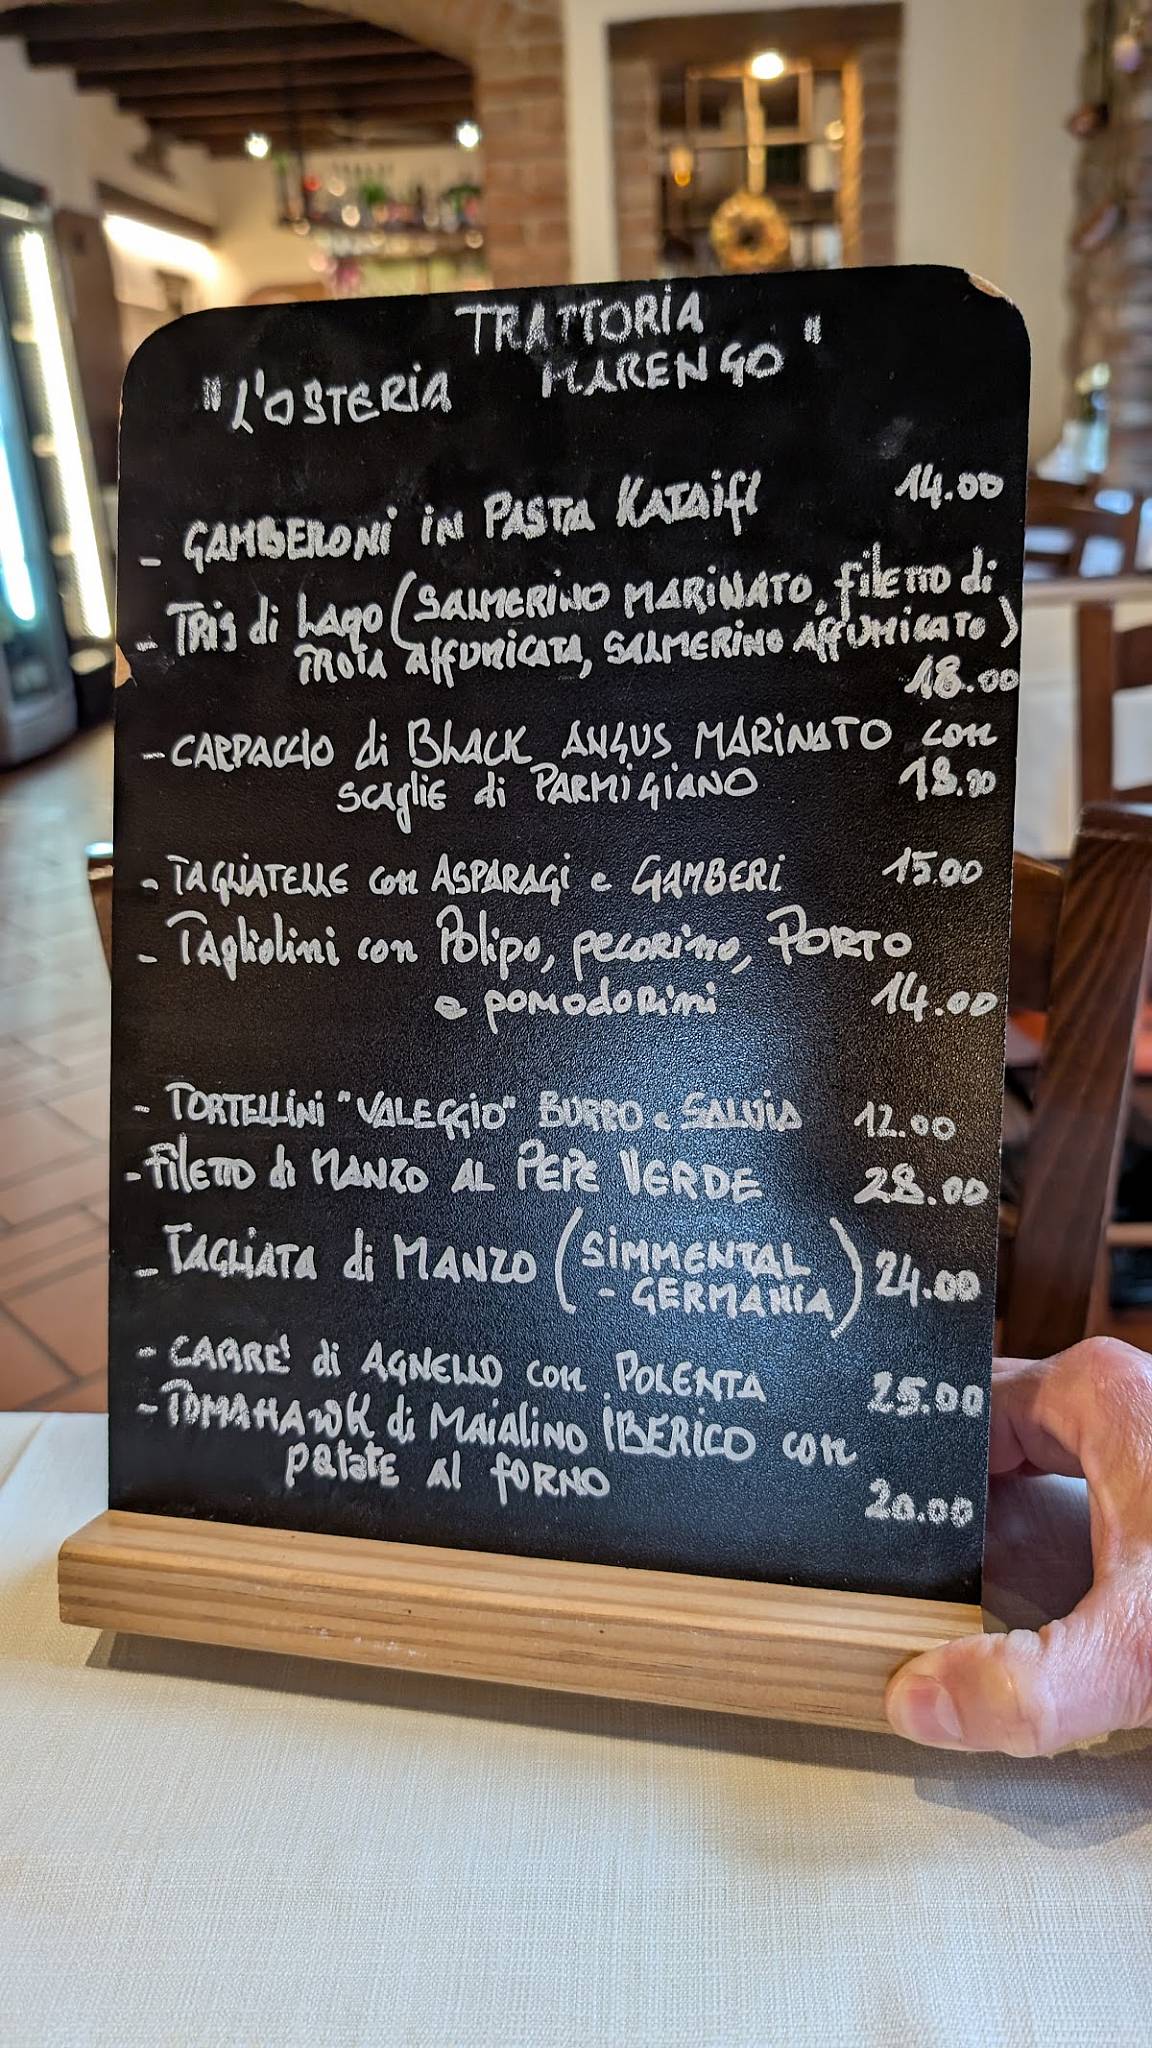 TRATTORIA
"L'OSTERIA MARENGO"
- GAMBERONI in PASTA KATAifi 14.00
- TRIS di LAGO (SALMERINO MARINATO, filETTO di
TROTA AffUMICATA, SALMERINO AffUMICATO)
18.00
- CARPACCIO di BLACK ANGUS MARINATO con
scaglie di PARMIGIANO 18.00
- TAGLIATELLE con ASPARAGI e GAMBERI 15.00
- Tagliolini con Polipo, pecorino, PORTO
e pomodorini 14.00
- TORTELLINI "VALEGGIO" BURRO e SALVIA 12.00
- FILETTO di MANZO AL PEPE VERDE 28.00
- TAGLIATA di MANZO (SIMMENTAL 24.00
- GERMANIA)
- CARRE' di AGNELLO con POLENTA 25.00
- TOMAHAWK di MAIALINO IBERICO con
patate al forno
20.00